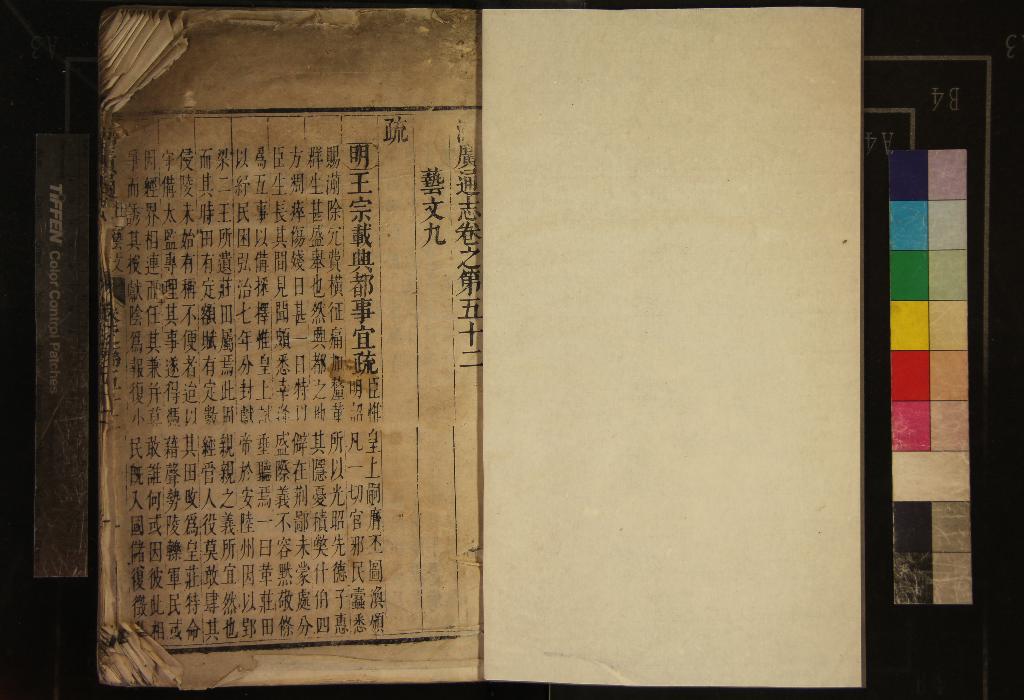 廣通志卷之第五十二
藝文九
疏
明王宗載興都事宜疏臣惟皇上嗣膺丕圖渙頒
明詔凡一切官邪民蠹悉
賜漸除冗費橫征痛加釐革所以光昭先德子惠
群生甚盛舉也然興都之地其隱憂積弊什伯四
方凋瘁傷殘日甚一日特以僻在荆鄙未蒙處分
臣生長其間見聞頗悉幸逢盛際義不容默敬條
為五事以備採擇惟皇上垂聽焉一曰革莊田
以紓民困弘治七年分封獻帝於安陸州因以郢
梁二王所遺莊田屬焉此固親親之義所宜然也
而其時田有定額賦有定數經管人役莫敢肆其
侵陵未始有稱不便者迨以其田改為皇莊特命
守備太監專理其事遂得憑藉聲勢陵轢軍民或
因經界相連而任其兼并敢誰何或因彼此相
爭而誘其投獻陰為報復小民既入國儲復徵
TIFFEN Color Control Patches
A3
B4
A4